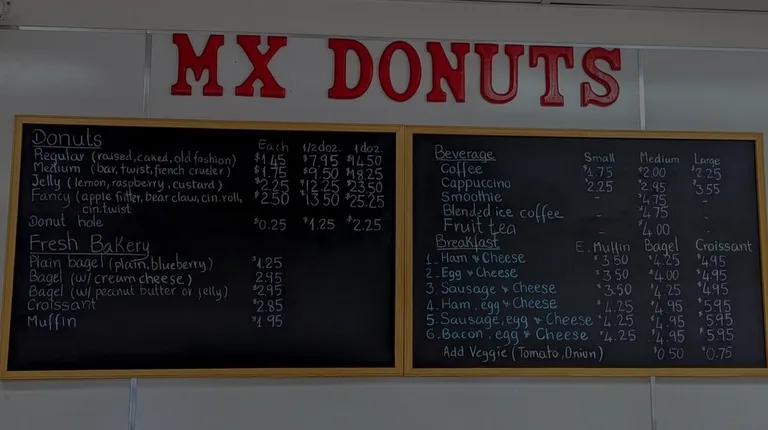 MX DONUTS
Donuts Each 1/2doz. 1doz.
Regular (raised, caked, old fashion) $1.45 $7.95 $14.50
Medium (bar, twist, french crueler) $1.75 $9.50 $18.25
Jelly (lemon, raspberry, custard) $2.25 $12.25 $23.50
Fancy (apple fitter, bear claw, cin.roll, $2.50 $13.50 $25.25
cin.twist
Donut hole $0.25 $1.25 $2.25
Fresh Bakery
Plain bagel (plain, blueberry) $1.25
Bagel (w/ cream cheese) 2.95
Bagel (w/ peanut butter or jelly) $2.95
Croissant $2.85
Muffin $1.95
Beverage Small Medium Large
Coffee $1.75 $2.00 $2.25
Cappuccino $2.25 $2.95 $3.55
Smoothie - $4.75 -
Blended ice coffee - $4.75 -
Fruit tea - $4.00 -
Breakfast E. Muffin Bagel Croissant
1. Ham & Cheese $3.50 $4.25 $4.95
2. Egg & Cheese $3.50 $4.00 $4.95
3. Sausage & Cheese $3.50 $4.25 $4.95
4. Ham, egg & Cheese $4.25 $4.95 $5.95
5. Sausage, egg & Cheese $4.25 $4.95 $5.95
6. Bacon, egg & Cheese $4.25 $4.95 $5.95
Add Veggie (Tomato, Onion) $0.50 $0.75